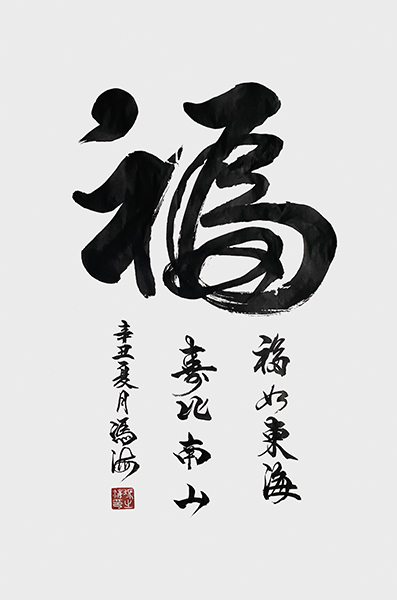 福
福如東海
壽比南山
辛丑夏月馮海